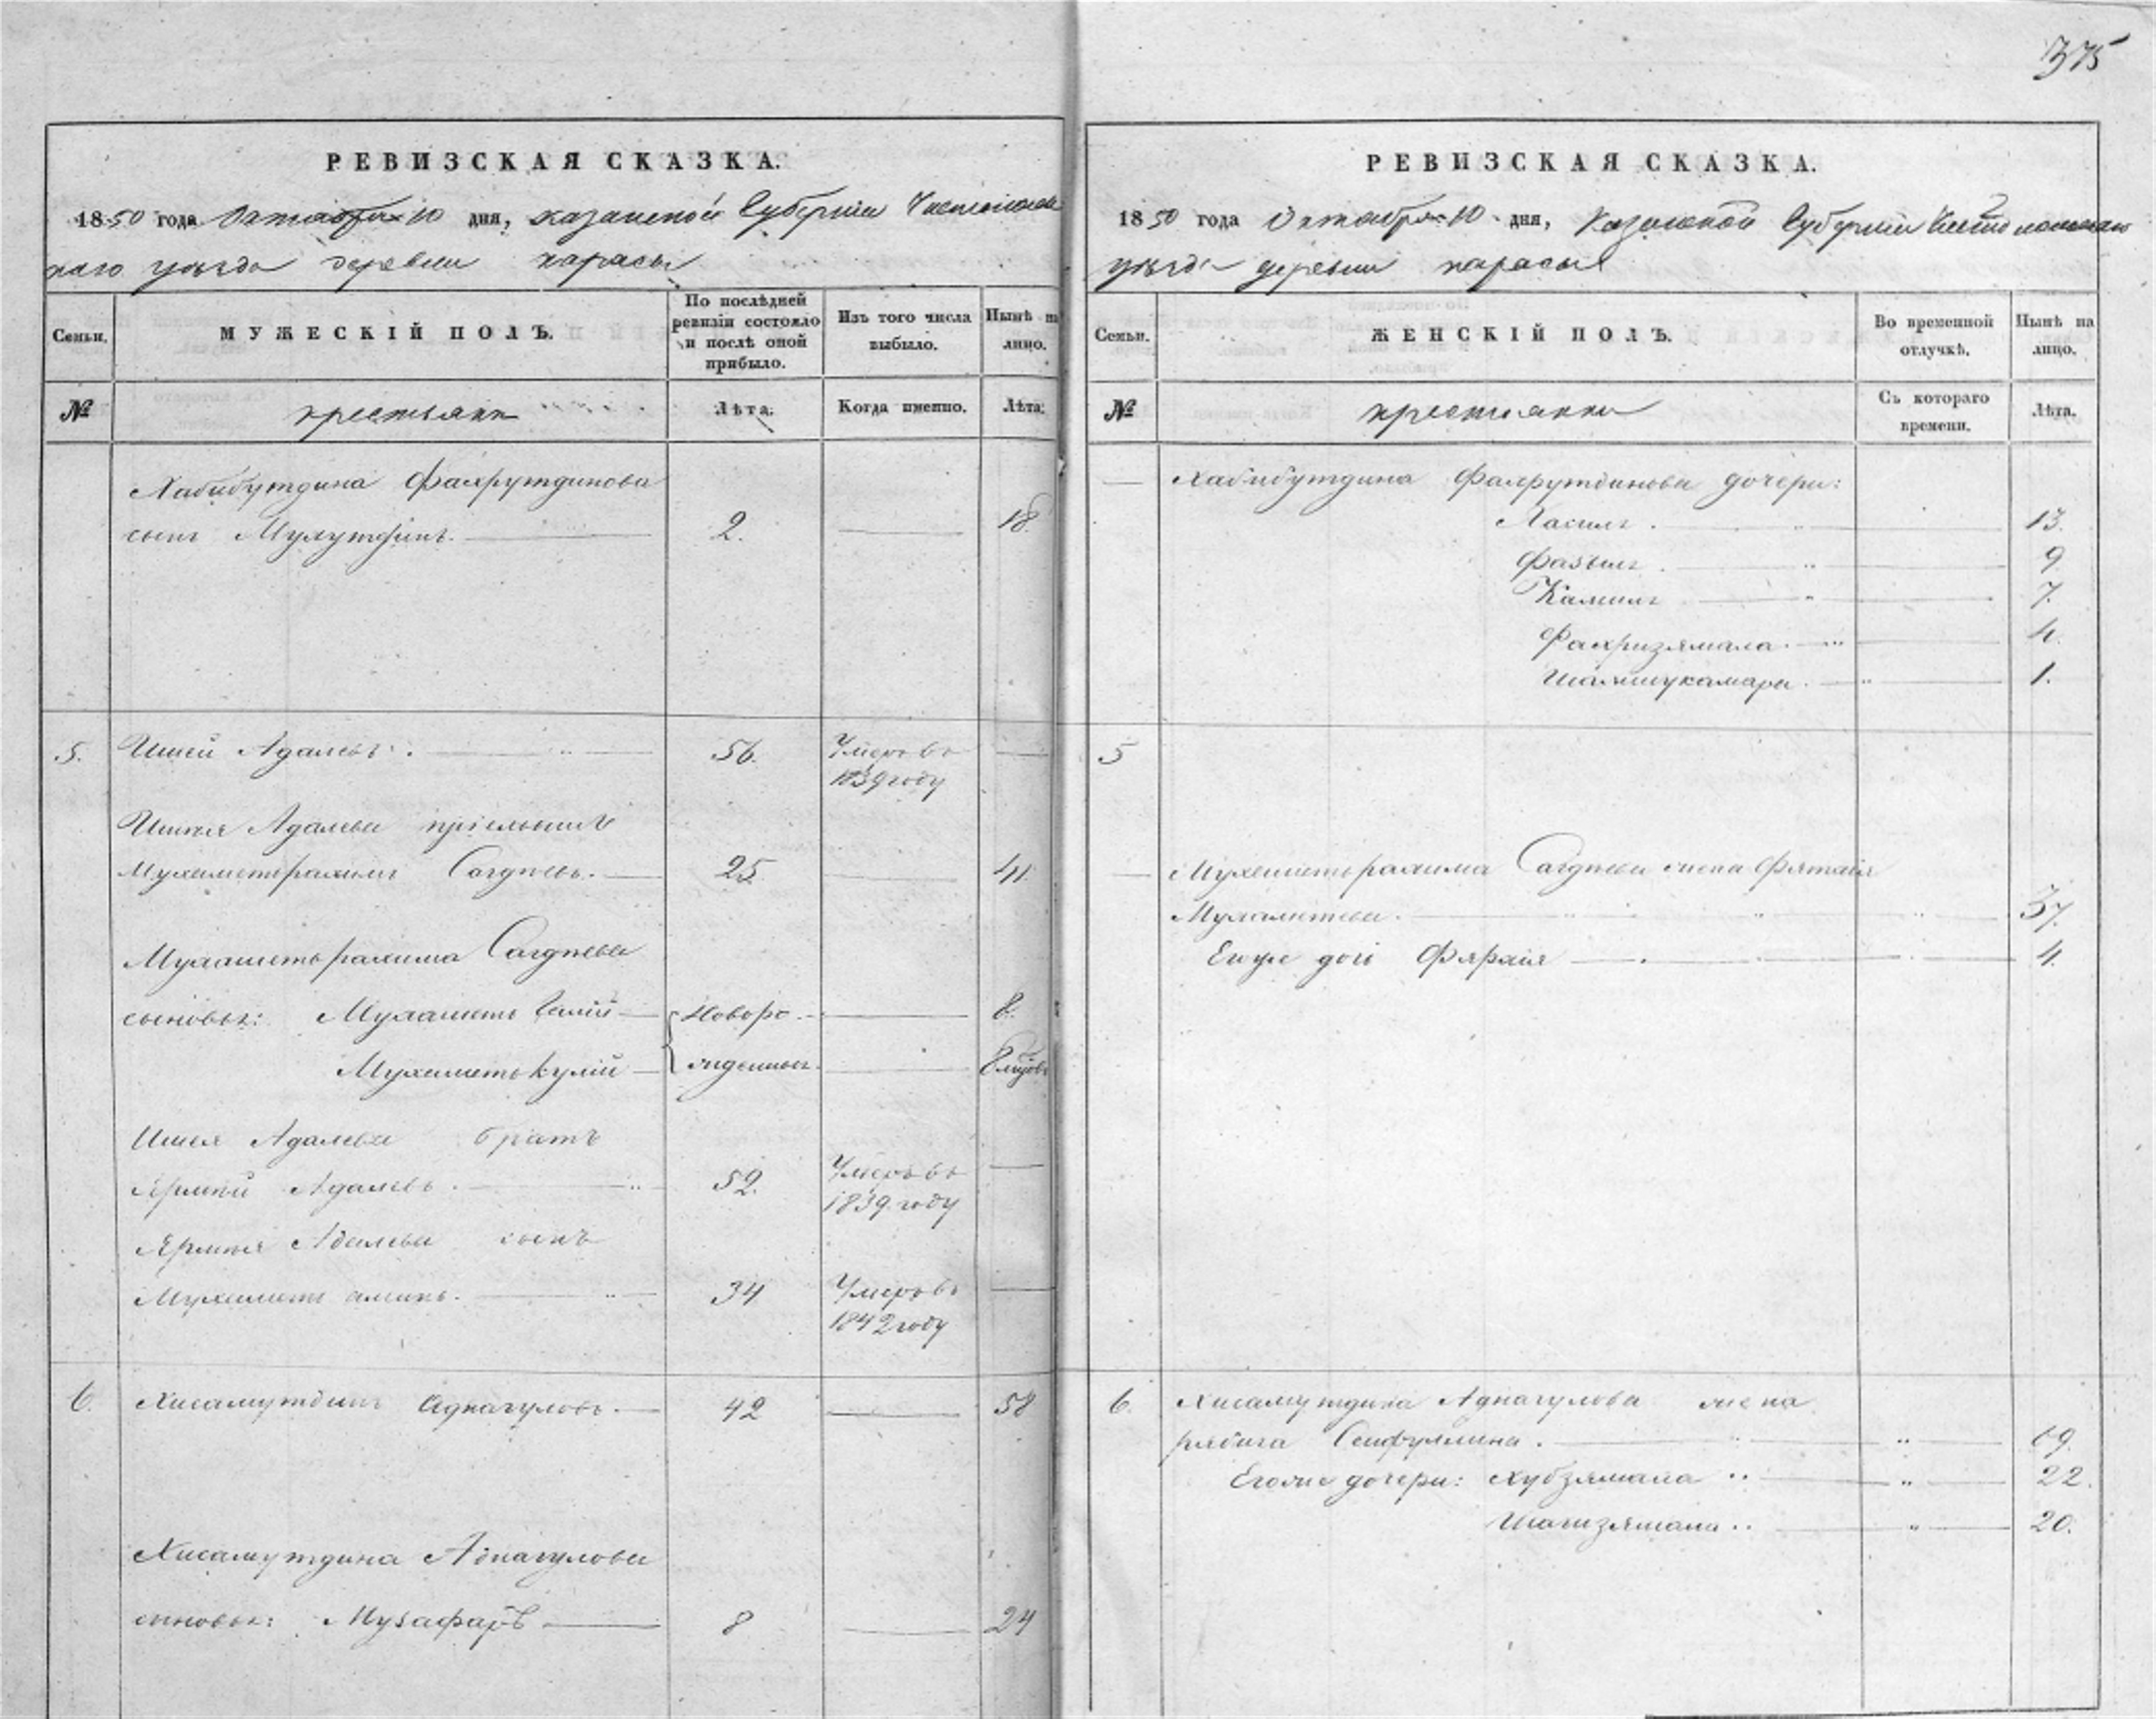 375
РЕВИЗСКАЯ СКАЗКА.
1850 года Октября 10 дня, Казанской Губернии
уезда деревни Карасы
Семьи.
МУЖЕСКІЙ ПОЛЪ.
По послѣдней ревизіи состояло и послѣ оной прибыло.
Изъ того числа выбыло.
Нынѣ на лицо.
№
крестьяне
Лѣта.
Когда именно.
Лѣта.
Хабибутдина Фахрутдинова
сынъ 2. 18.
5. Ишей Адаевъ 56. Умеръ въ
1839 году
Ишея Адаева
Мухаметьрахимъ Сагдеевъ. 25. 41.
Мухаметьрахима Сагдеева
сыновья: Мухаметь Галій Новоро- 8.
Мухаметькулій жденные
Ишея Адаева братъ
Адаевъ. 52. Умеръ въ
1839 году
Адаева сынъ
Мухаметь аминъ. 34 Умеръ въ
1842 году
6. Хисамутдинъ Аднагуловъ. 42 58
Хисамутдина Аднагулова
сыновья: Музафаръ 8 24
РЕВИЗСКАЯ СКАЗКА.
1850 года Октября 10 дня, Казанской Губерніи
уезда деревни Карасы
Семьи.
ЖЕНСКІЙ ПОЛЪ.
Во временной отлучкѣ.
Нынѣ на лицо.
№
крестьянки
Съ котораго времени.
Лѣта.
Хабибутдина Фахрутдинова дочери:
13.
9.
Камиля 7.
Фахризямала. 4.
Шамшукамара. 1.
5
Мухаметьрахима Сагдеева жена
37.
Ево же дочь 4.
6. Хисамутдина Аднагулова жена
Сейфуллина.
Его же дочери: Хубзямала 22.
Шагизямала 20.